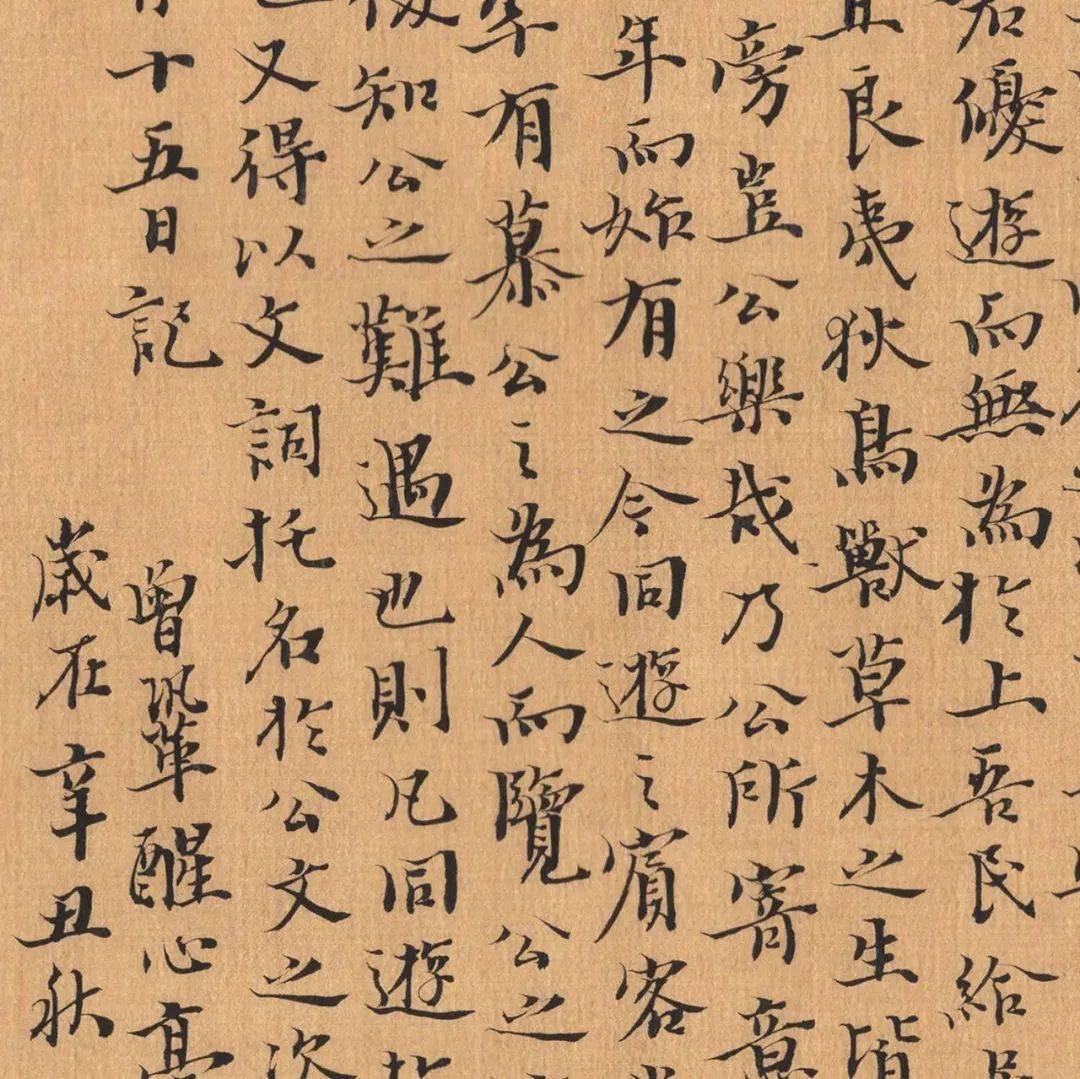 君優遊而無為於上吾民給
且良夷狄鳥獸草木之生皆
旁豈公樂哉乃公所寄意
年而始有之今同遊之賓客
年有慕公之為人而覽公之
知公之難遇也則凡同遊於
又得以文詞托名於公文之次
十五日記
曾鞏醒心亭
歲在辛丑秋